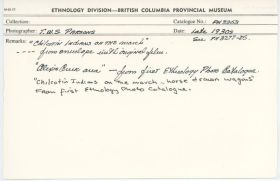 ETHNOLOGY DIVISION—BRITISH COLUMBIA PROVINCIAL MUSEUM
Collection: Catalogue No.: PN3253
Photographer: T.W.S. Parsons Date: Late 1930s
Remarks: "Chilcotin Indians on the march" See PN3277-85.
---- from envelope with original film.
"Alexis Creek area" — from first Ethnology Photo Catalogue
"Chilcotin Indians on the march - horse drawn wagons"
From first Ethnology Photo Catalogue.